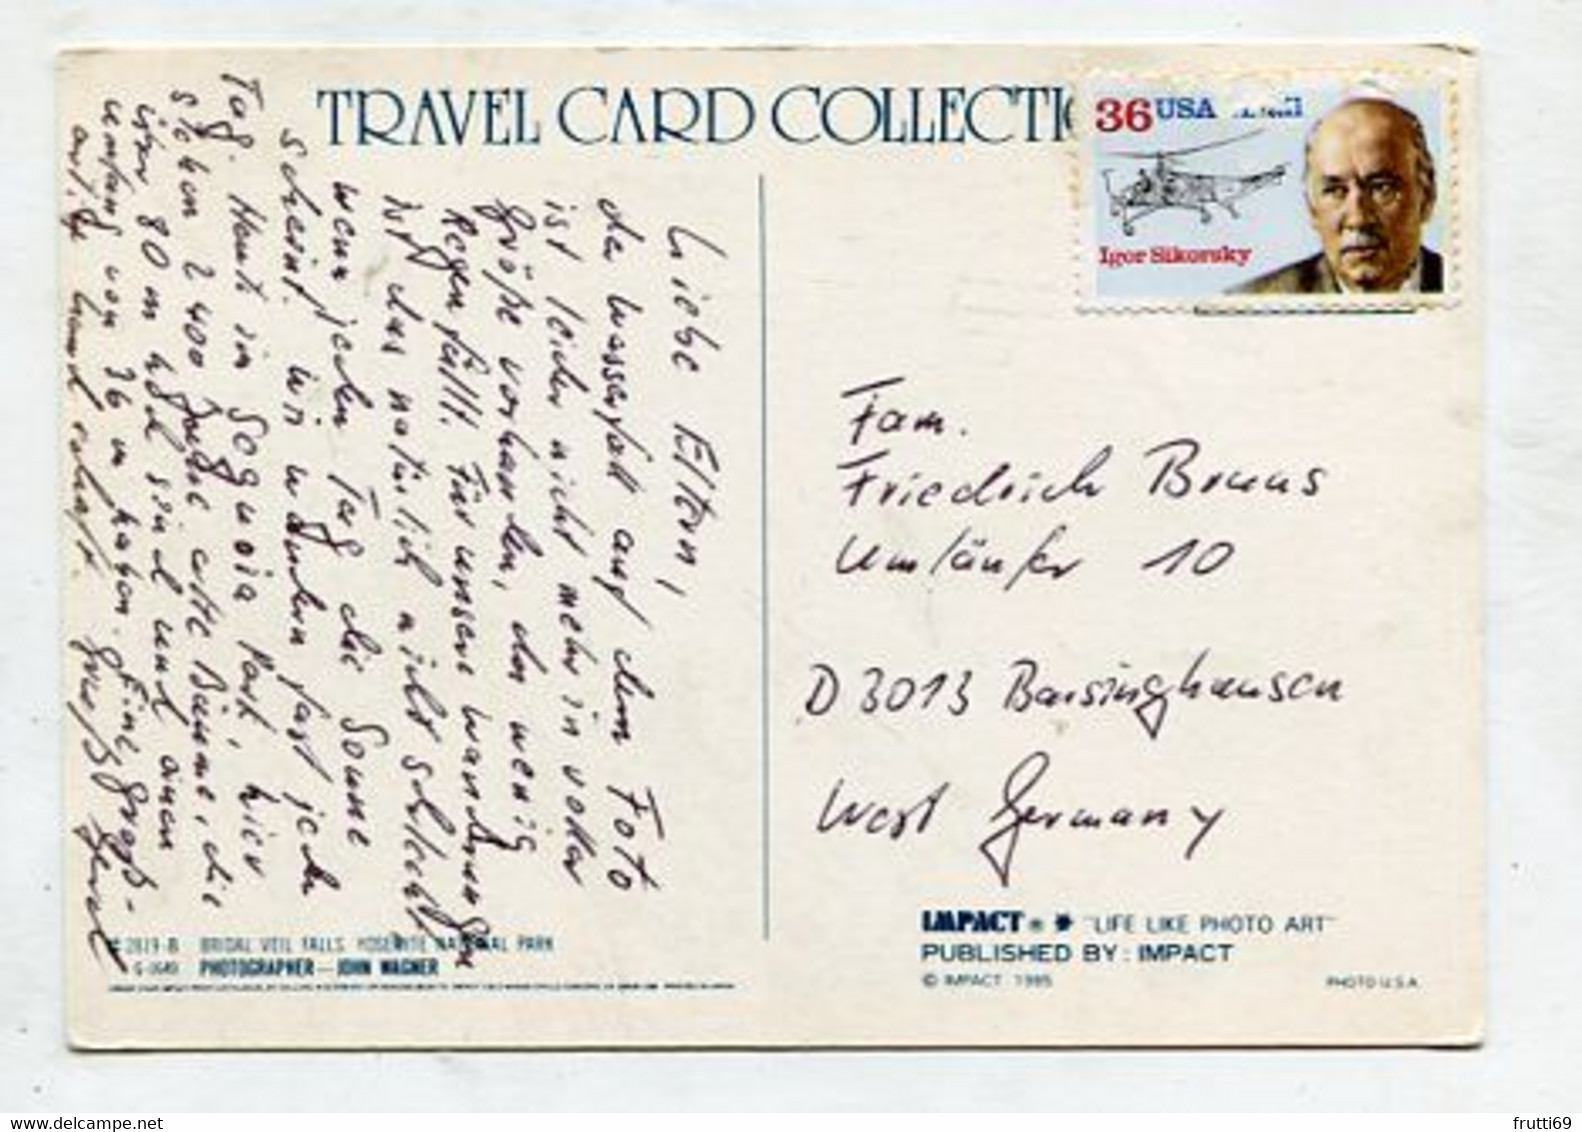 TRAVEL CARD COLLECTIO
36 USA
Igor Sikorsky
Liebe Eltern,
der Wasserfall auf dem Foto
ist leider nicht mehr in voller
Größe vorhanden, da wenig
Regen fällt. Für unsere Wanderungen
ist das natürlich nicht schlecht
wenn jeden Tag die Sonne
scheint. Wir wandern fast jeden
Tag. Heute im Sequoia Park, hier
stehen 2400 Jahre alte Bäume, die
über 80 m hoch sind und einen
Umfang von 36 m haben. Eine groß-
Gruß Gerd
Fam.
Friedrich Bruns
Umläufer 10
D 3013 Barsinghausen
West Germany
2819-B BRIDAL VEIL FALLS, YOSEMITE NATIONAL PARK
PHOTOGRAPHER — JOHN WAGNER
IMPACT® "LIFE LIKE PHOTO ART"
PUBLISHED BY: IMPACT
© IMPACT 1985 PHOTO U.S.A.
frutti69